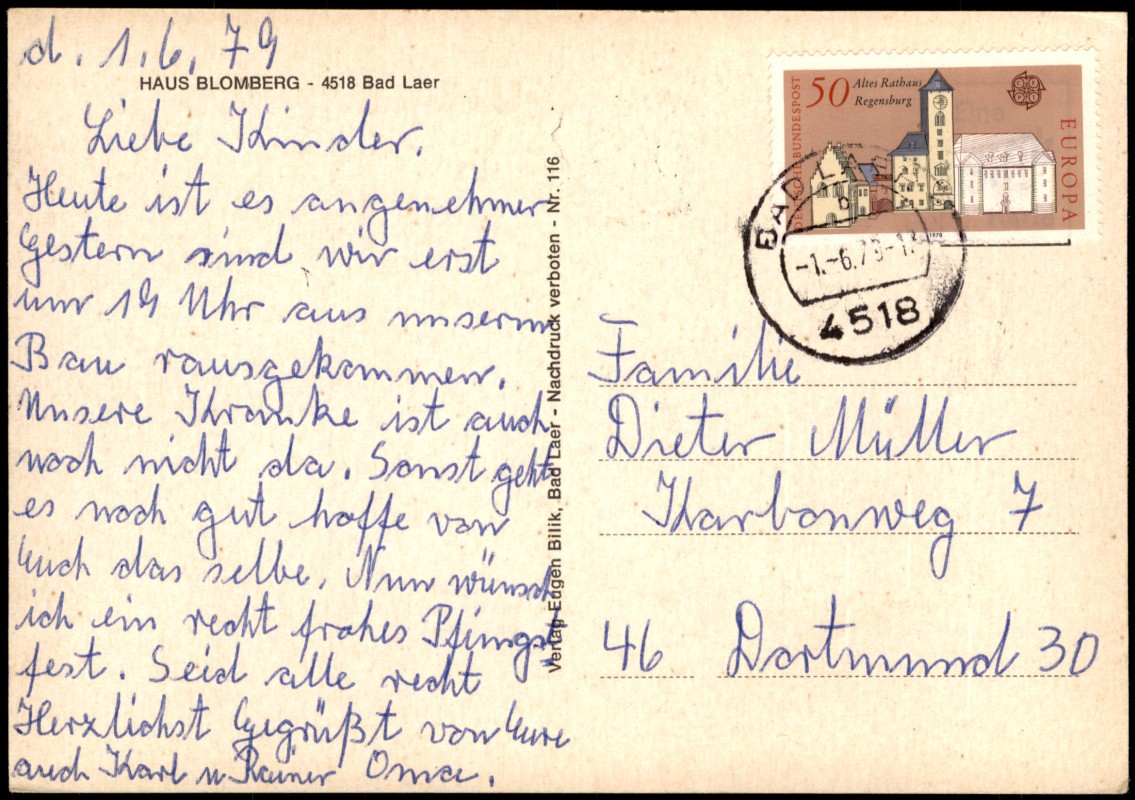 d. 1.6.79
HAUS BLOMBERG - 4518 Bad Laer
Liebe Kinder.
Heute ist es angenehmer
Gestern sind wir erst
um 19 Uhr aus unserm
Bau rausgekommen.
Unsere Kranke ist auch
noch nicht da. Sonst geht
es noch gut hoffe von
Euch das selbe. Nun wünsch
ich ein recht frohes Pfingst
fest. Seid alle recht
Herzlichst Gegrüßt von Eure
auch Karl u Rainer Oma.
Verlag Eugen Bilik, Bad Laer - Nachdruck verboten - Nr. 116
DEUTSCHE BUNDESPOST
50 Altes Rathaus
Regensburg
EUROPA
1978
BAD LA
b
-1.-6.79-1
4518
Familie
Dieter Müller
Karbonweg 7
46 Dortmund 30